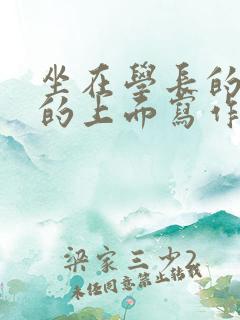 坐在學長的
的上面寫作
梁家三少2
未經同意禁止轉載